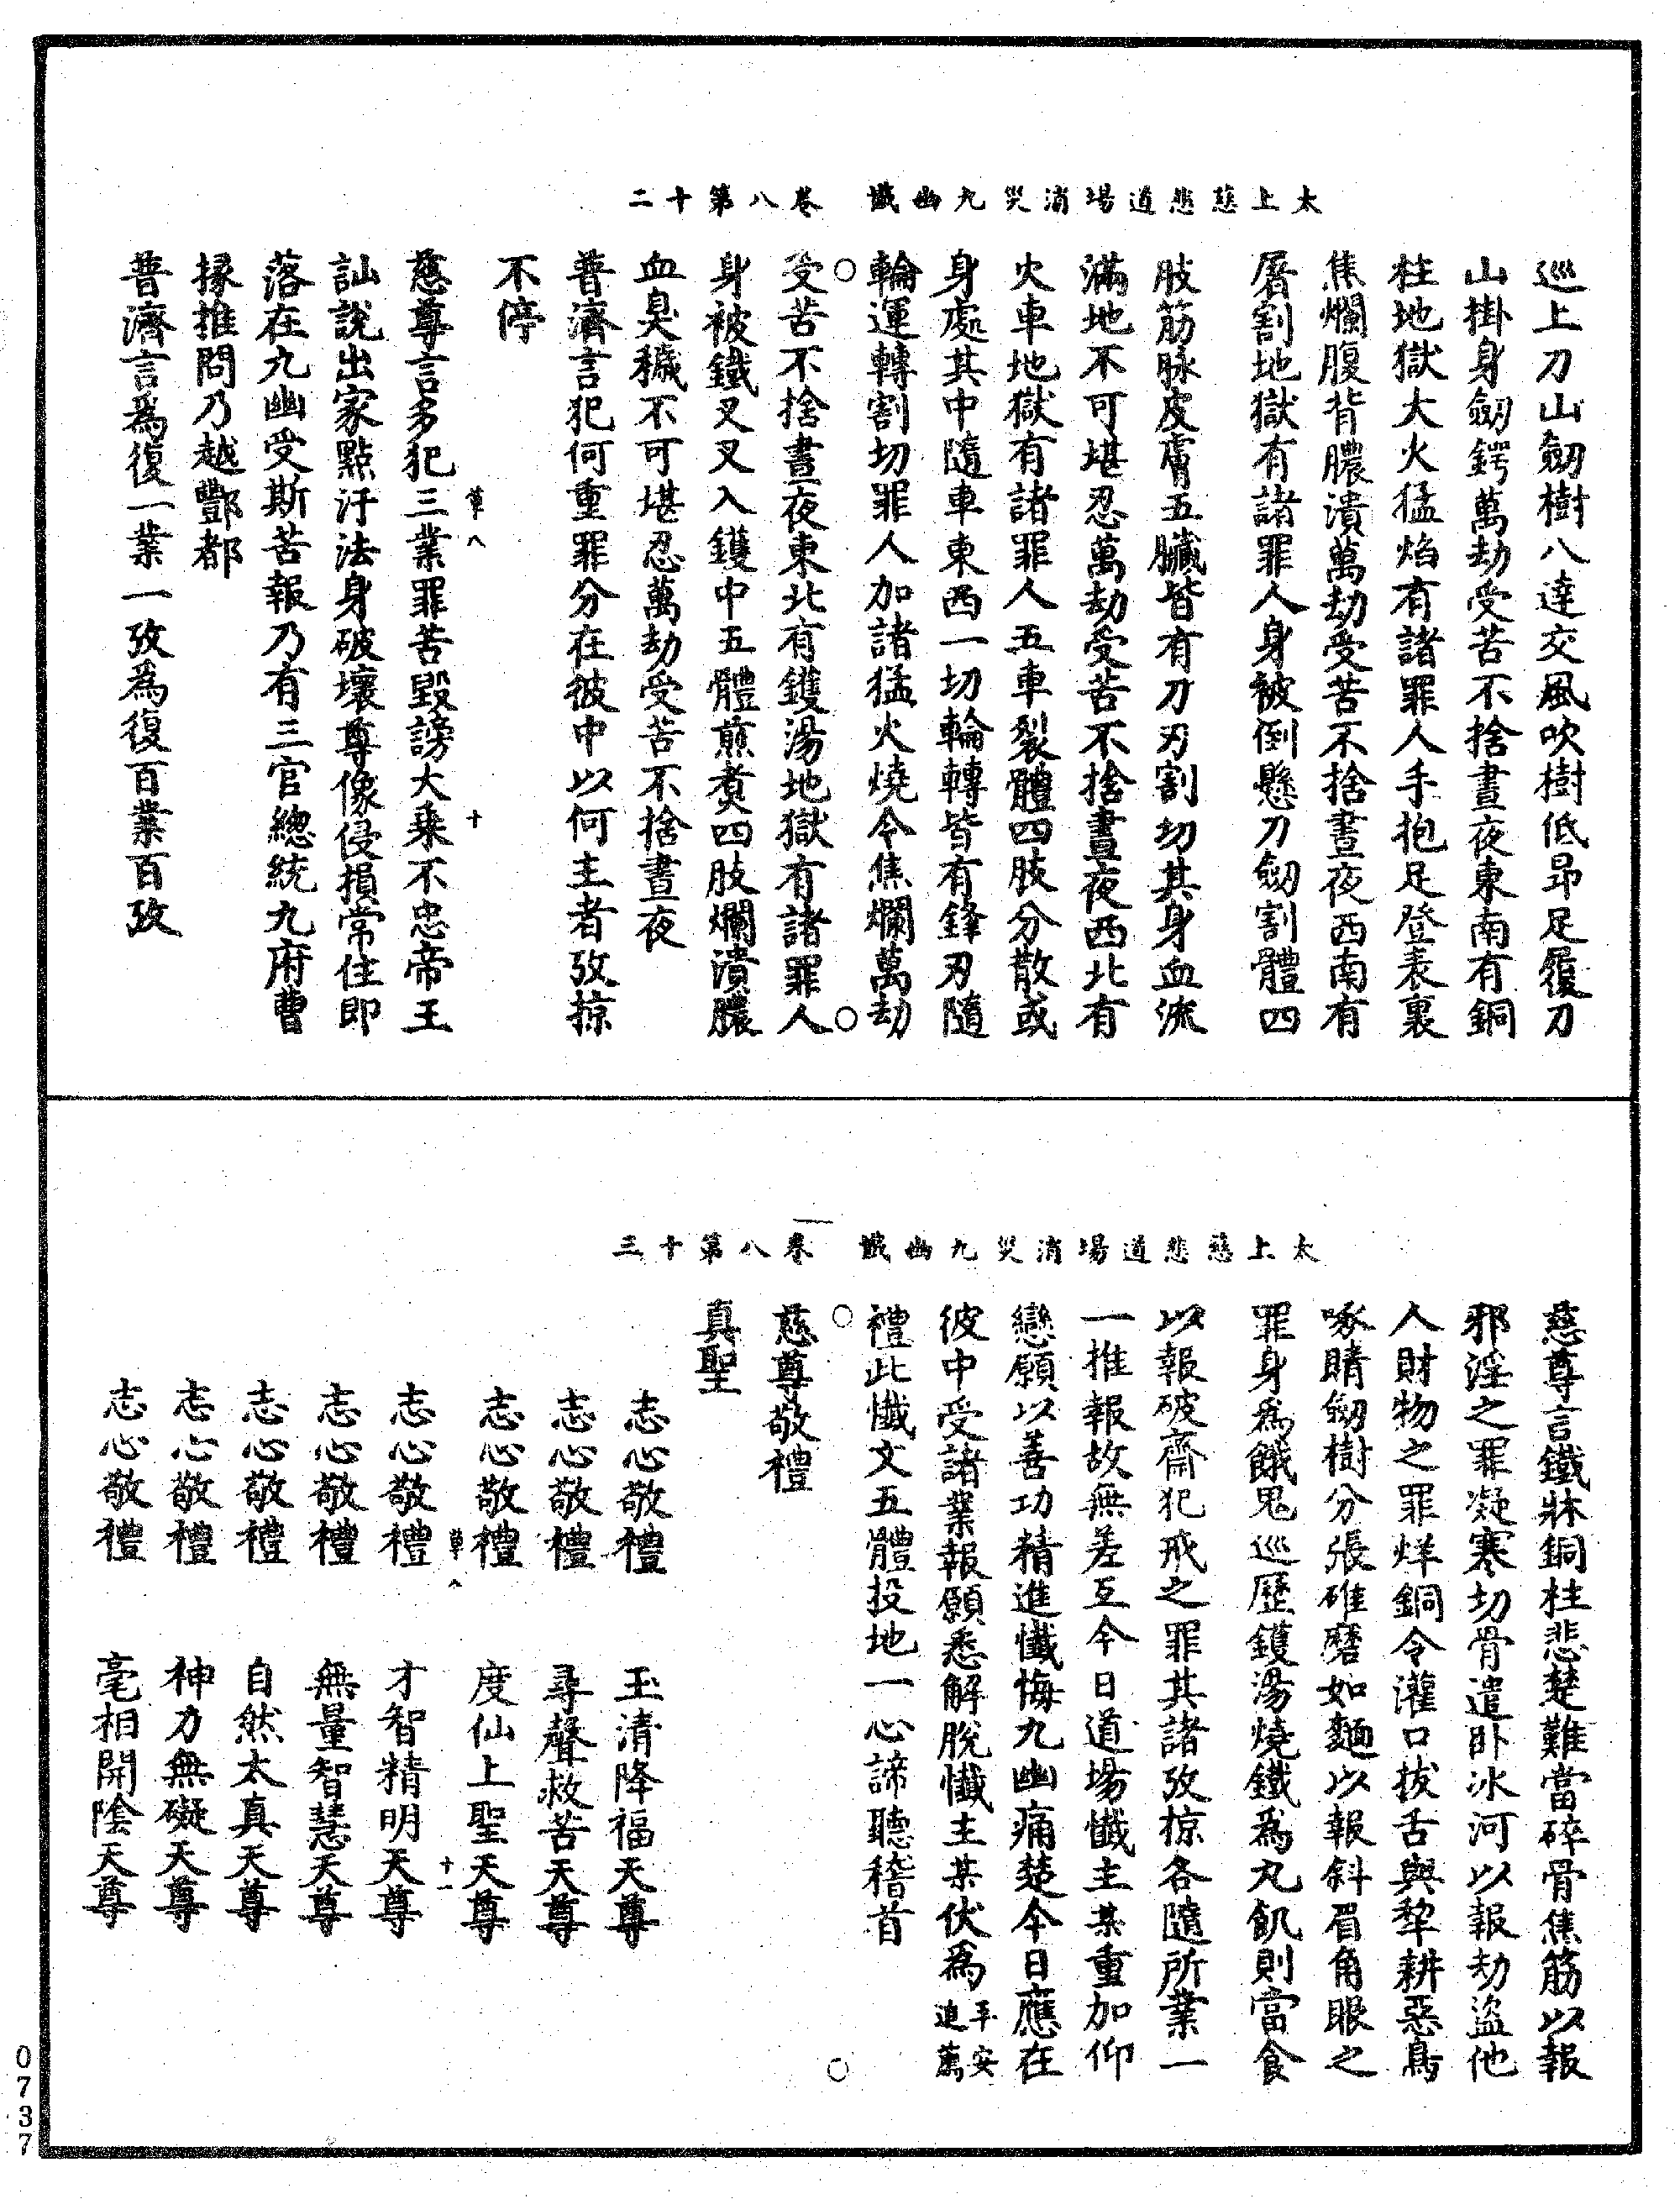 太上慈悲道場消災九幽懺　卷八第十二
巡上刀山劒樹八達交風吹樹低昂足履刀
山掛身劒鍔萬劫受苦不捨晝夜東南有銅
柱地獄大火猛焰有諸罪人手抱足登表裏
焦爛腹背膿潰萬劫受苦不捨晝夜西南有
屠割地獄有諸罪人身被倒懸刀劒割體四
肢筋脉皮膚五臟皆有刀刃割切其身血流
滿地不可堪忍萬劫受苦不捨晝夜西北有
火車地獄有諸罪人五車裂體四肢分散或
身處其中隨車東西一切輪轉皆有鋒刃隨
輪運轉割切罪人加諸猛火燒令焦爛萬劫
受苦不捨晝夜東北有鑊湯地獄有諸罪人
身被鐵叉叉入鑊中五體煎煑四肢爛潰膿
血臭穢不可堪忍萬劫受苦不捨晝夜
普濟言犯何重罪分在彼中以何主者攷掠
不停
草八　十
慈尊言多犯三業罪苦毀謗大乗不忠帝王
訕說出家點汙法身破壞尊像侵損常住即
落在九幽受斯苦報乃有三官總統九府曹
掾推問乃越酆都
普濟言為復一業一攷為復百業百攷
太上慈悲道場消災九幽懺　卷八第十三
慈尊言鐵牀銅柱悲楚難當碎骨焦筋以報
邪淫之罪凝寒切骨遣卧冰河以報劫盜他
人財物之罪烊銅令灌口拔舌與犂耕惡鳥
啄睛劒樹分張碓磨如麵以報斜眉角眼之
罪身為餓鬼巡歷鑊湯燒鐵為丸飢則當食
以報破齋犯戒之罪其諸攷掠各隨所業一
一推報故無差互今日道場懺主某重加仰
戀願以善功精進懺悔九幽痛楚今日應在
彼中受諸業報願悉解脫懺主某伏為平安追薦
禮此懺文五體投地一心諦聽稽首
慈尊敬禮
真聖
志心敬禮　玉清降福天尊
志心敬禮　尋聲救苦天尊
志心敬禮　度仙上聖天尊
草八　十一
志心敬禮　才智精明天尊
志心敬禮　無量智慧天尊
志心敬禮　自然太真天尊
志心敬禮　神力無礙天尊
志心敬禮　毫相開陰天尊
0737